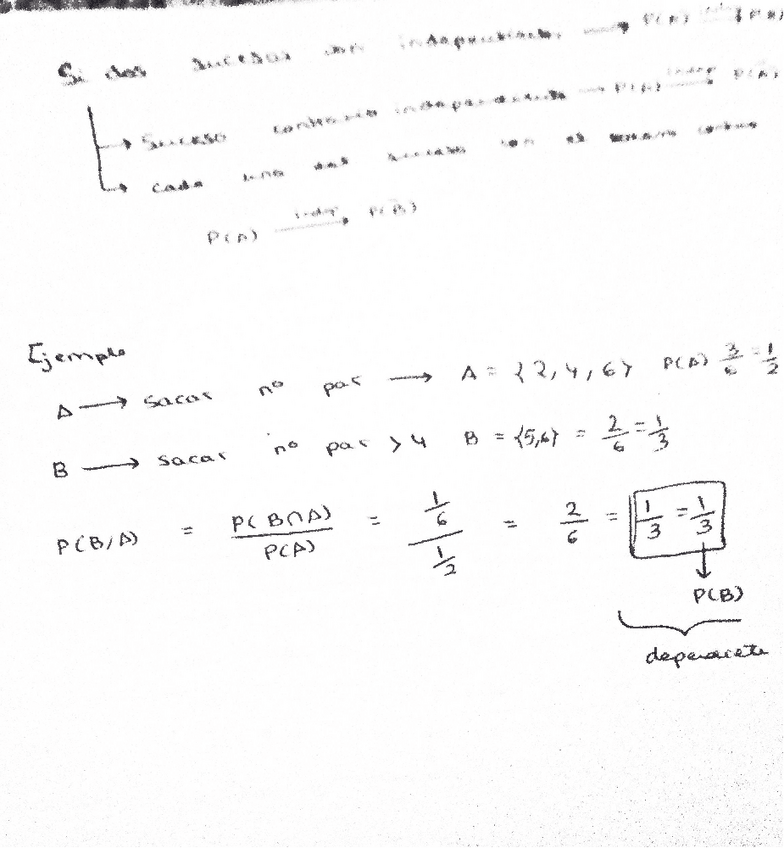 Si dos sucesos son independientes → P(A)
→ Suceso contrario independiente → P(A) indep→ P(A)
→ cada uno dos sucesos con el
P(A) indep→ P(B)
Ejemplo
A → sacar nº par → A = {2,4,6} P(A) 3/6 = 1/2
B → sacar nº par > 4 B = {5,6} = 2/6 = 1/3
P(B/A) = P(B∩A)/P(A) = (1/6)/(1/2) = 2/6 = 1/3 = 1/3
P(B)